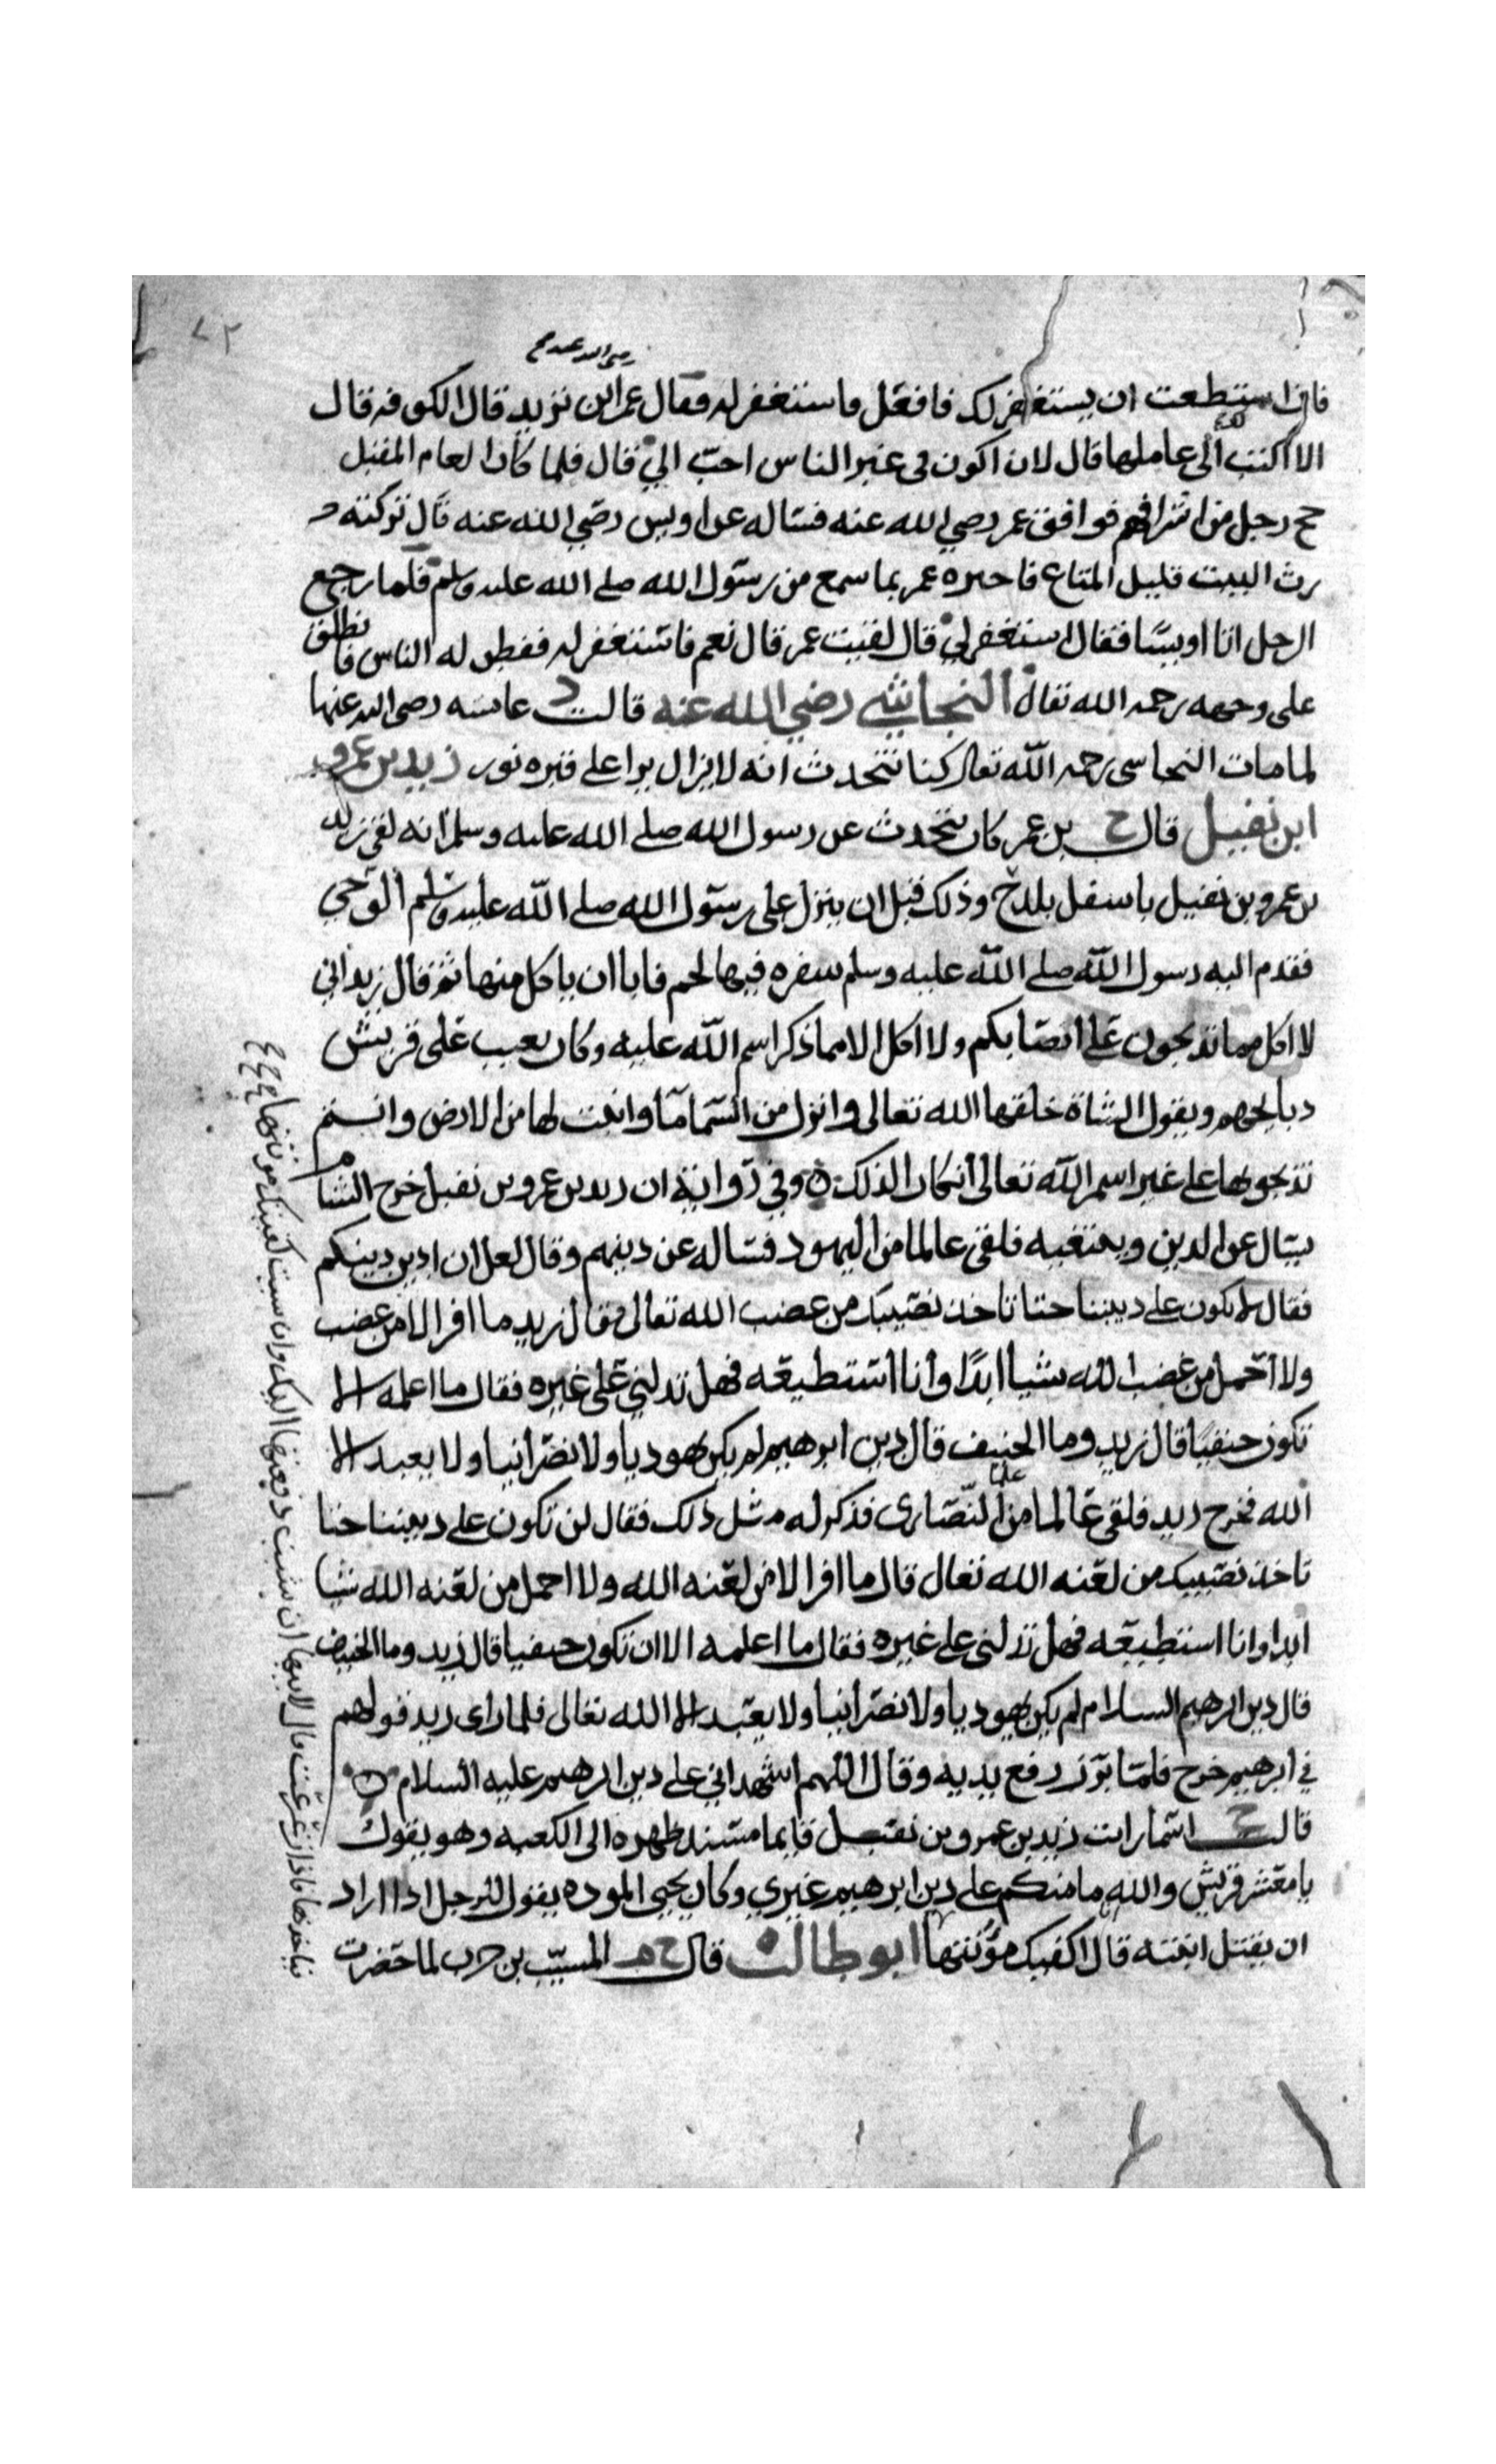 ٧٢
رضى الله عنه
فان استطعت ان يستغفر لك فافعل فاستغفر له فقال عمر اين تريد قال الكوفه قال
الا اكتب لك الى عاملها قال لان اكون فى غبر الناس احبّ اليّ قال فلما كان العام المقبل
حج رجل من اشرافهم فوافق عمر رضي الله عنه فساله عن اويس رضي الله عنه قال تركته
رث البيت قليل المتاع فاخبره عمر بما سمع من رسول الله صلى الله عليه وسلم فلما رجع
الرجل اتا اويسًا فقال استغفر لي قال لقيت عمر قال نعم فاستغفر له ففطن له الناس فانطلق
على وجهه رحمه الله تعالى النجاشي رضي الله عنه قالت د عائشه رضى الله عنها
لما مات النجاشى رحمه الله تعالى كنا نتحدث انه لا يزال يرا على قبره نور زيد بن عمرو
ابن نفيل قال خ بن عمر كان يتحدث عن رسول الله صلى الله عليه وسلم انه لقى زيد
بن عمرو بن نفيل باسفل بلدح وذلك قبل ان ينزل على رسول الله صلى الله عليه وسلم الوحي
فقدم اليه رسول الله صلى الله عليه وسلم سفره فيها لحم فابا ان ياكل منها ثم قال زيد اني
لا اكل مما تذبحون على انصابكم ولا اكل الا مما ذكر اسم الله عليه وكان يعيب على قريش
دبايحهم ويقول الشاة خلقها الله تعالى وانزل من السما ما وانبت لها من الارض وانتم
تذبحونها على غير اسم الله تعالى انكارا لذلك ٥ وفي رواية ان زيد بن عمرو بن نفيل خرج الى الشام
يسال عن الدين ويتبغيه فلقى عالما من اليهود فساله عن دينهم وقال لعل ان ادين دينكم
فقال لا تكون على ديننا حتا تاخذ نصيبك من غضب الله تعالى فقال زيد ما افر الا من غضب
ولا احمل من غضب الله شيا ابدًا وانا استطيعه فهل تدلني على غيره فقال ما اعلمه الا
تكون حنيفيًا قال زيد وما الحنيف قال دين ابرهيم لم يكن يهوديا ولا نصرانيا ولا يعبد الا
الله فخرج زيد فلقى عالما من النصارى فذكر له مثل ذلك فقال لن تكون على ديننا حتا
تاخذ نصيبك من لعنه الله تعالى قال ما افر الا من لعنه الله ولا احمل من لعنه الله شيا
ابدا وانا استطيعه فهل تدلنى على غيره فقال ما اعلمه الا ان تكون حنيفيا قال زيد وما الحنيف
قال دين ابرهيم السلام لم يكن يهوديا ولا نصرانيا ولا يعبد الا الله تعالى فلما راى زيد قولهم
في ابرهيم خرج فلما برز رفع يديه وقال اللهم اشهد اني على دين ابرهيم عليه السلام ٥
قالت خ اسما رايت زيد بن عمرو بن نفيل قايما مسند ظهره الى الكعبه وهو يقول
يا معشر قريش والله ما منكم على دين ابرهيم غيري وكان يحيى الموده يقول للرجل اذا اراد
ان يقتل ابنته قال اكفيك مؤنتها ابو طالب قال خ م المسيّب بن حزن لما حضرت
فياخذها فاذا ترعرعت قال لابيها ان شيت دفعتها اليك وان شيت كفيتك مونتها